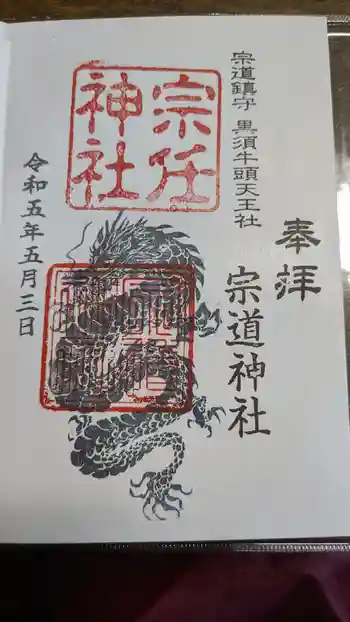 奉拝
宗道鎮守 黒須牛頭天王社
宗道神社
宗任
神社
令和五年五月三日